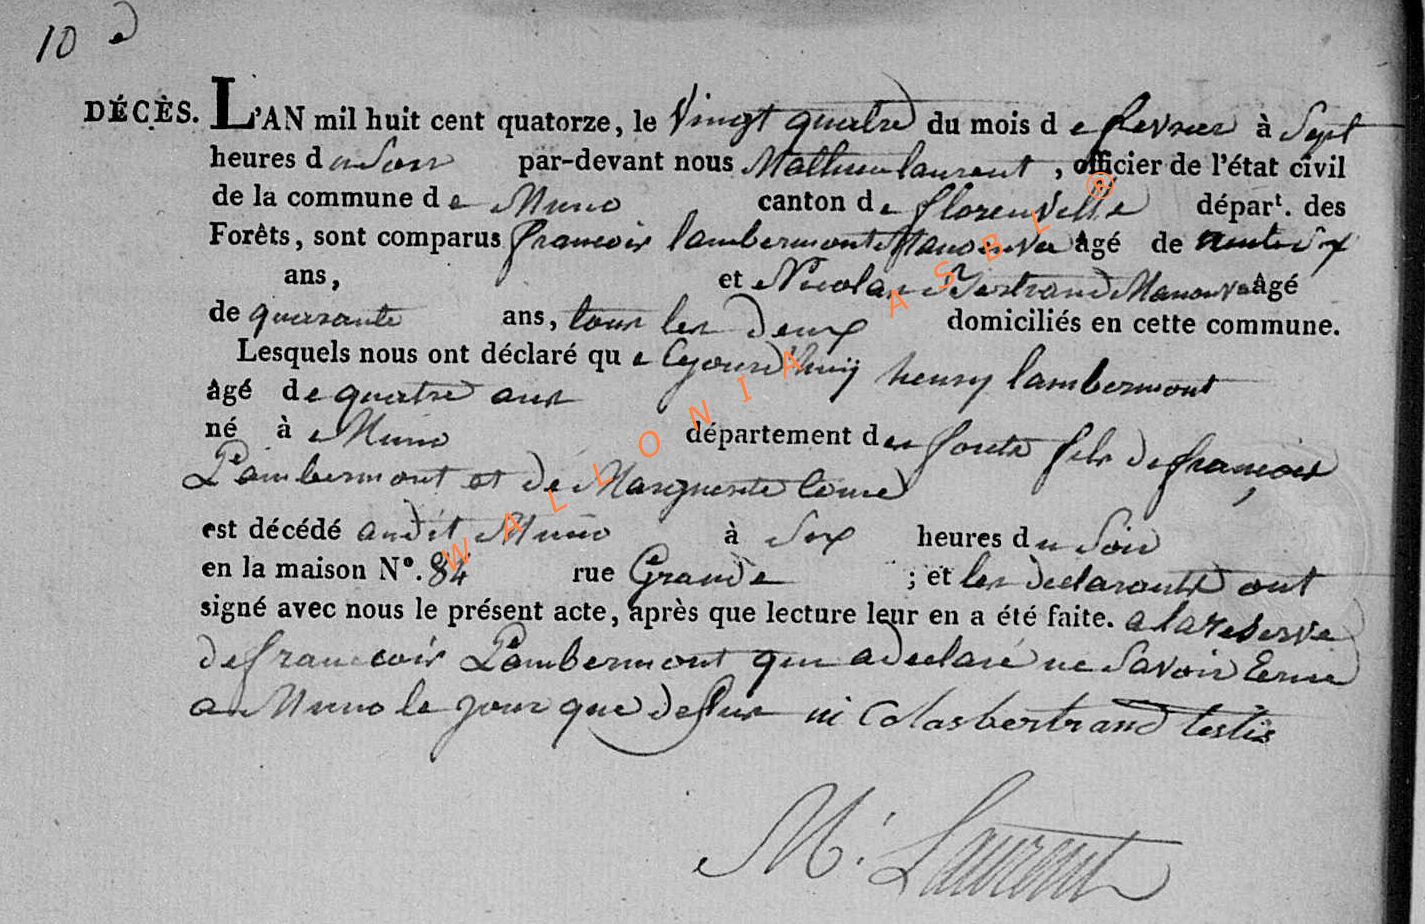 10 e
DÉCÈS. L'AN mil huit cent quatorze, le Vingt quatre du mois de fevrier à Sept
heures du Soir par-devant nous Mathieu laurent, officier de l'état civil
de la commune de Muno canton de florenville départ. des
Forêts, sont comparus francois lambermont Manoeuvre âgé de
ans, et Nicolas Bertrand Manouvre âgé
de quarante ans, tous les deux domiciliés en cette commune.
Lesquels nous ont déclaré que Cejourd'huij henry lambermont
âgé de quatre ans
né à Muno département des forets fils de françois
Lambermont et de Marguerite
est décédé audit Muno à Six heures du Soir
en la maison N°. 84 rue Grande ; et les declarants ont
signé avec nous le présent acte, après que lecture leur en a été faite. a la reserve
de francois Lambermont qui a declaré ne Savoir Ecrire
a Muno le jour que dessus ni Colas bertrand testis
M. Laurent
WALLONIA ASBL ®